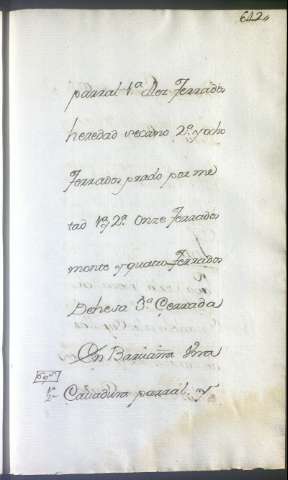 642
parral 1ª diez Ferrados
heredad secano 2ª y ocho
Ferrados prado por me
tad 1ª y 2ª Onze Ferrados
monte y quatro Ferrados
Dehesa 3ª Cerrada
En Bariama Una
Cavadura parral